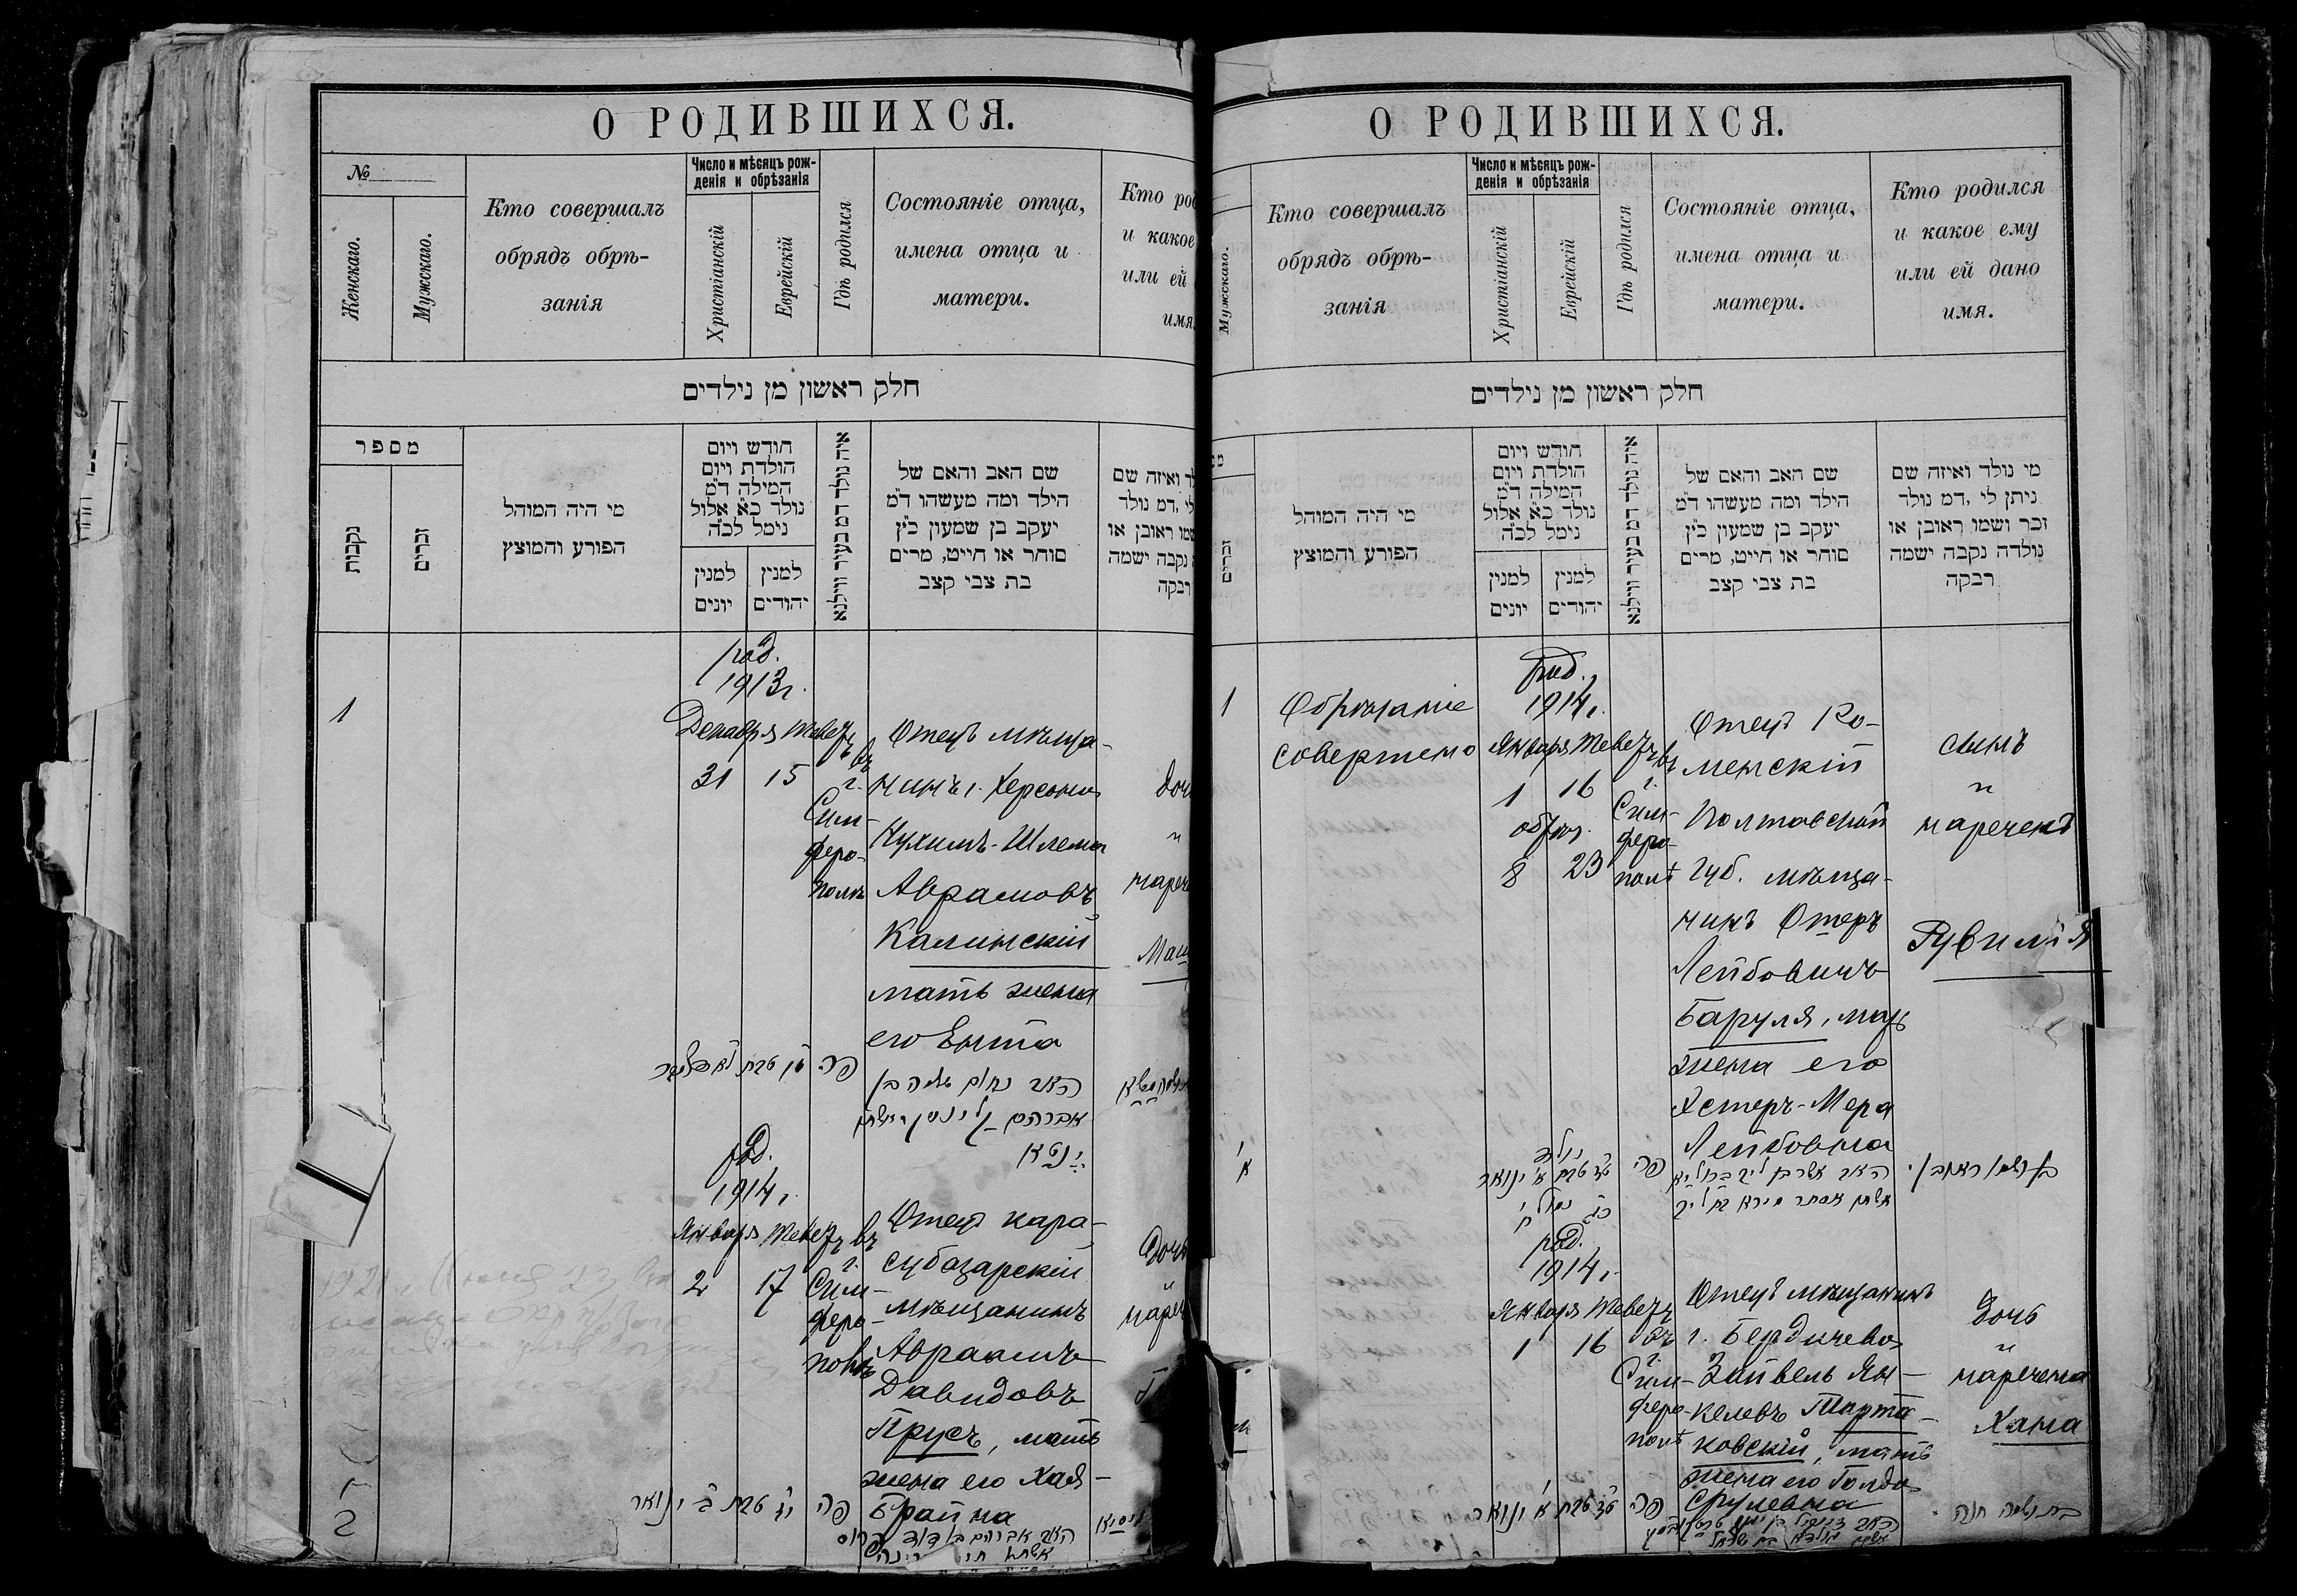 О РОДИВШИХСЯ.
№
Женскаго.
Мужскаго.
Кто совершалъ
обрядъ обрѣ-
занія
Число и мѣсяцъ рож-
денія и обрѣзанія
Христіанскій
Еврейскій
Гдѣ родился
Состояніе отца,
имена отца и
матери.
Кто род
и какое
или ей
имя.
חלק ראשון מן נילדים
מספר
נקבות
זכרים
מי היה המוהל
הפורע והמוצץ
חודש ויום
הולדת ויום
המילה ד״מ
נולד כ״א אלול
נימל לכ״ה
למנין
יונים
למנין
יהודים
איה נולד דמ בעיר ווילנא
שם האב והאם של
הילד ומה מעשהו ד״מ
יעקב בן שמעון כ״ץ
סוחר או חייט, מרים
בת צבי קצב
לד ואיזה שם
לי, דמ נולד
שמו ראובן או
נקבה ישמה
רבקה
1
род.
1913 г.
Декабря Тевеѳ
31 15
въ
г.
Сим-
феро-
полѣ
Отецъ мѣща-
нинъ г. Херсона
Нухимъ-Шлема
Аврамовъ
Калинскій
мать жена
его Ента
доч
и
нареч
פה
האב נחום שלמה בן
אברהם
יענטא
род.
1914 г.
Января Тевеѳ
2 17
въ
г.
Сим-
феро-
полѣ
Отецъ кара-
субазарскій
мѣщанинъ
Авраамъ
Давидовъ
Прусъ, мать
жена его Хая-
Брайна
дочь
и
нареч
2
פה
י״ז טבת ב׳ ינואר
האב אברהם בן דוד פרוס
О РОДИВШИХСЯ.
Мужскаго.
Кто совершалъ
обрядъ обрѣ-
занія
Число и мѣсяцъ рож-
денія и обрѣзанія
Христіанскій
Еврейскій
Гдѣ родился
Состояніе отца,
имена отца и
матери.
Кто родился
и какое ему
или ей дано
имя.
חלק ראשון מן נילדים
זכרים
מי היה המוהל
הפורע והמוצץ
חודש ויום
הולדת ויום
המילה ד״מ
נולד כ״א אלול
נימל לכ״ה
למנין
יונים
למנין
יהודים
איה נולד דמ בעיר ווילנא
שם האב והאם של
הילד ומה מעשהו ד״מ
יעקב בן שמעון כ״ץ
סוחר או חייט, מרים
בת צבי קצב
מי נולד ואיזה שם
ניתן לי, דמ נולד
זכר ושמו ראובן או
נולדה נקבה ישמה
רבקה
1
Обрѣзаніе
совершено
род.
1914 г.
Января Тевеѳ
1 16
обрѣз.
8 23
въ
г.
Сим-
феро-
полѣ
Отецъ Ро-
менскій
Полтавской
губ. мѣща-
нинъ Ошеръ
Лейбовичъ
Баруля, мать
жена его
Эстеръ-Мера
Лейбовна
сынъ
и
нареченъ
Рувимъ
א׳
נולד
ט״ז טבת א׳ ינואר
פה
род.
1914 г.
Января Тевеѳ
1 16
въ
г.
Сим-
феро-
полѣ
Отецъ мѣщанинъ
г. Бердичева
Зайвель Ян-
келевъ Тарта-
ковскій, мать
жена его Голда
Срулевна
дочь
и
наречена
Хана
ט״ז טבת א׳ ינואר
פה
בת ושמה חנה